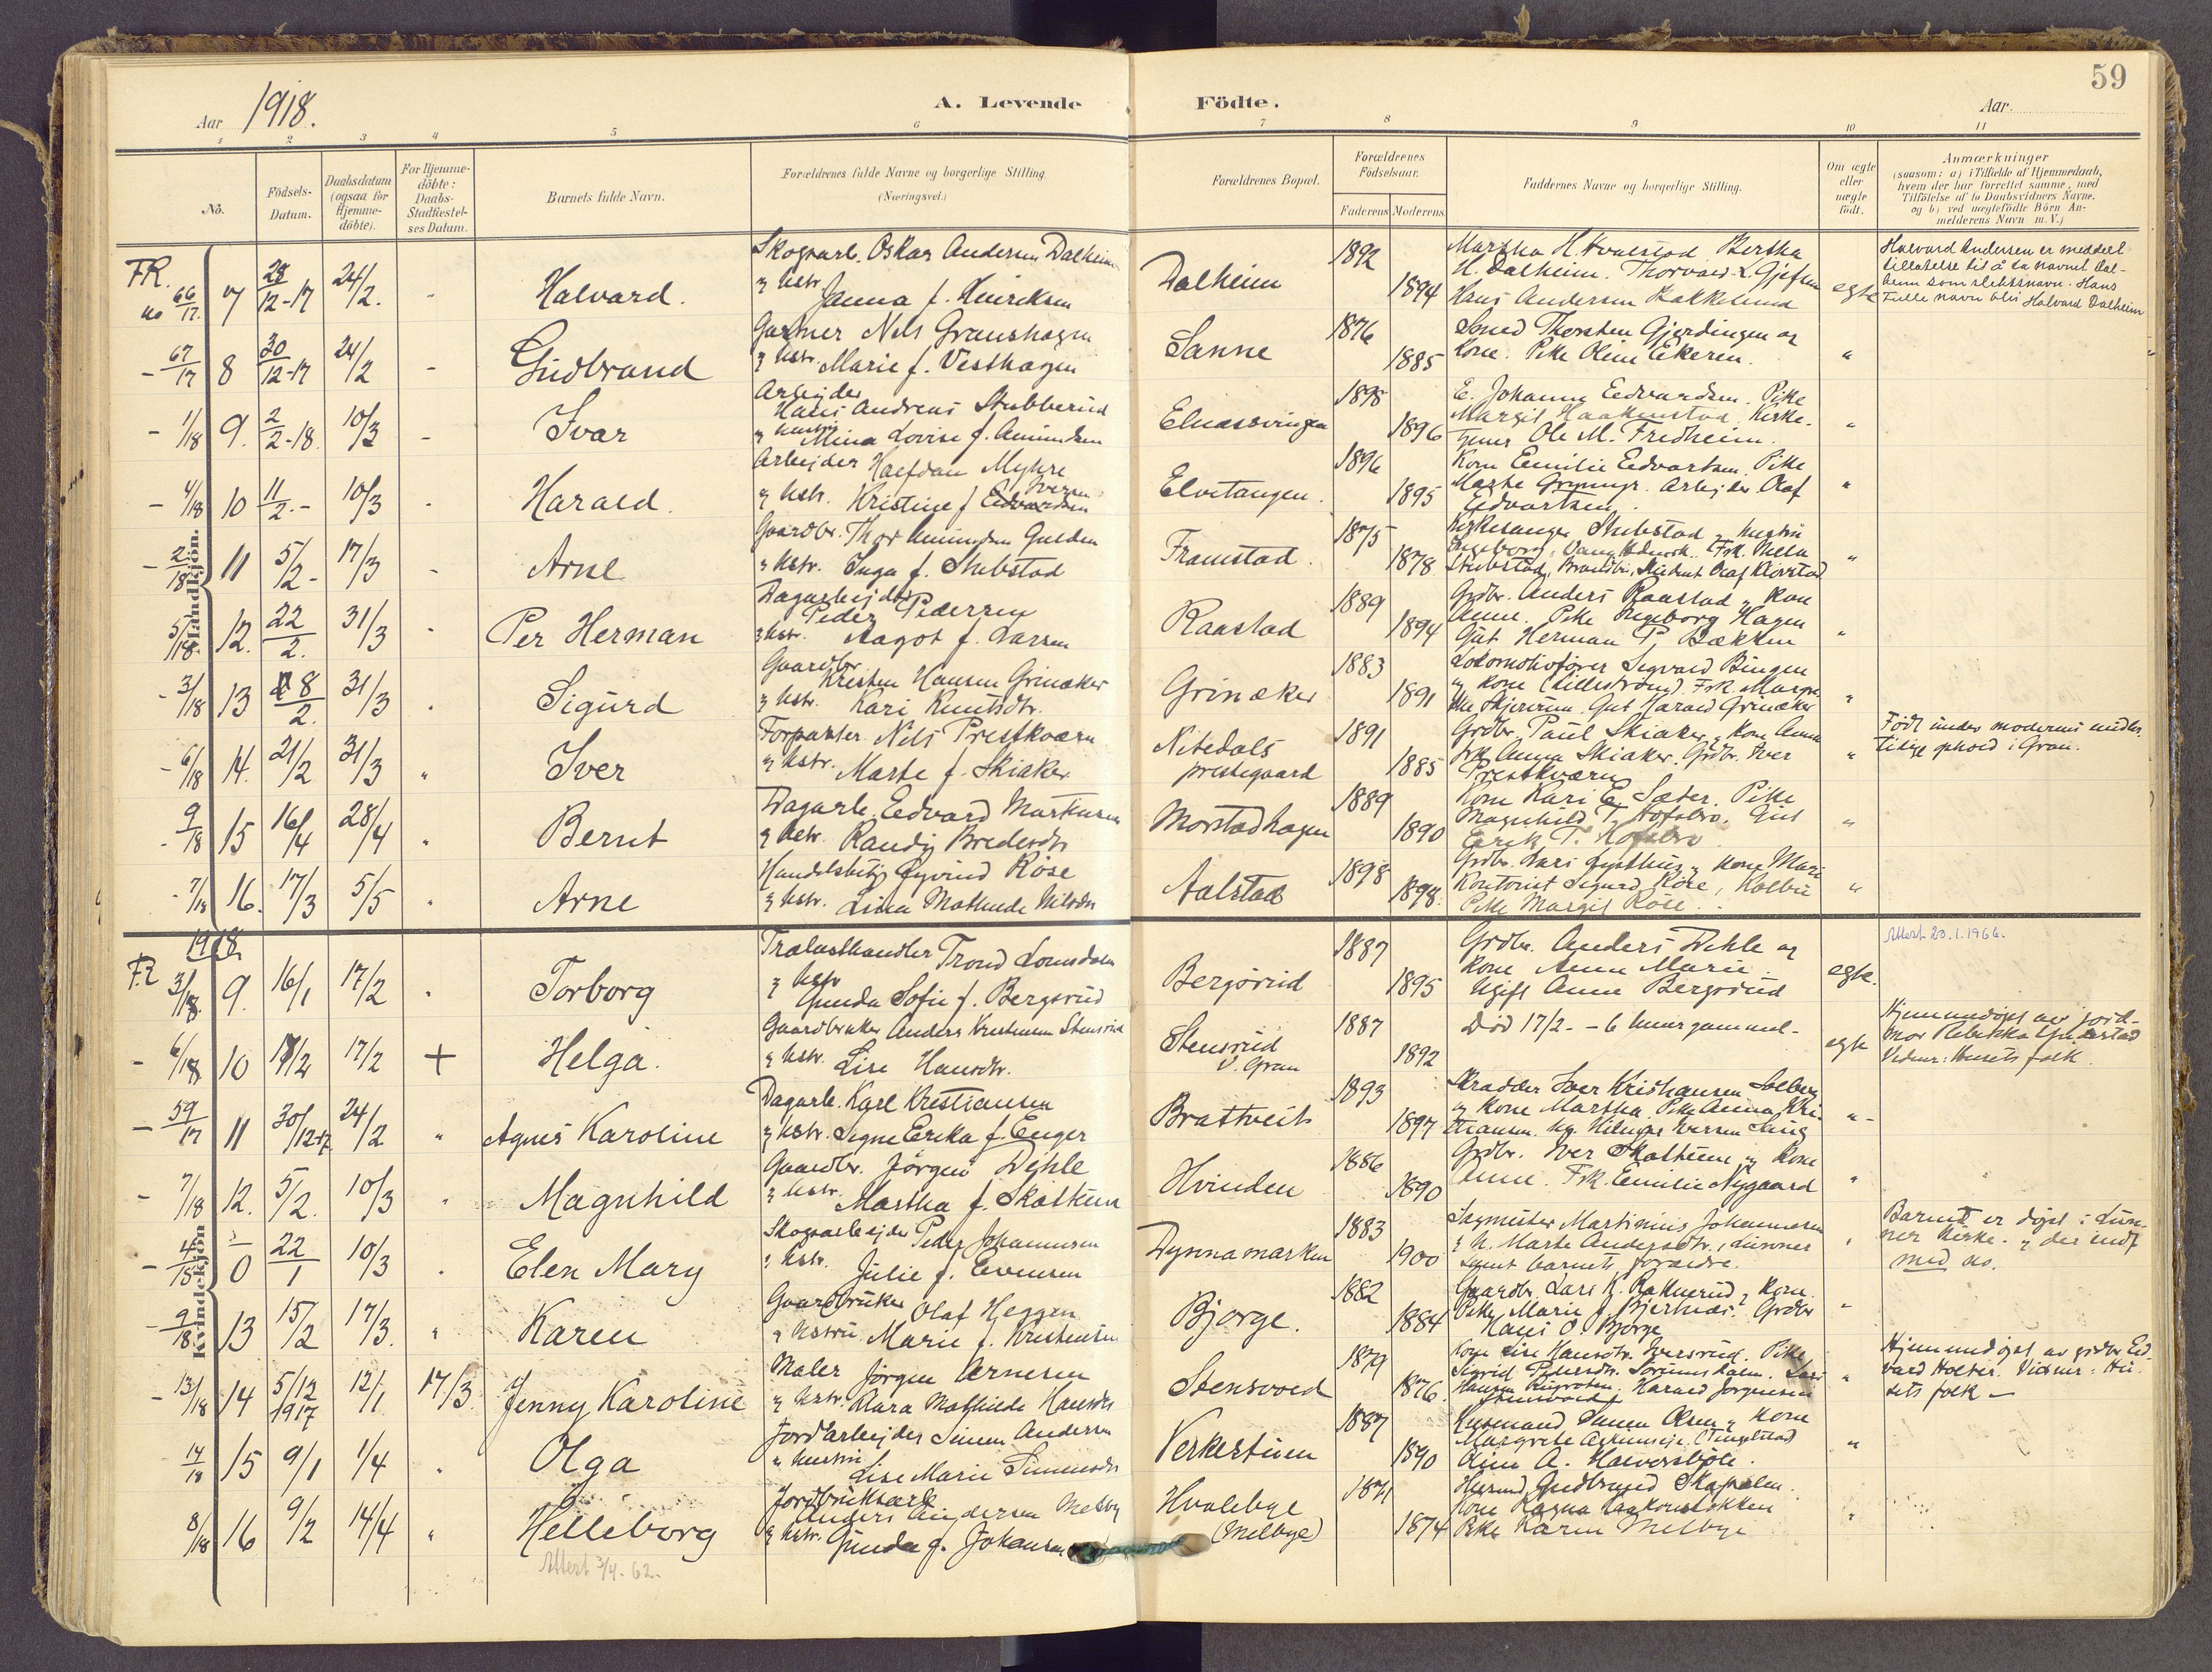 59
Aar 1918.
A. Levende Födte.
Aar.
1 2 3 4 5 6 7 8 9 10 11
No.
Födsels-Datum.
Daabsdatum (ogsaa for Hjemme-döbte).
For Hjemme-döbte: Daabs-Stadfæstel-ses Datum.
Barnets fulde Navn.
Forældrenes fulde Navne og borgerlige Stilling.
(Næringsvei.)
Forældrenes Bopæl.
Forældrenes Födselsaar.
Faderens. Moderens.
Faddernes Navne og borgerlige Stilling.
Om ægte eller uægte födt.
Anmærkninger
(saasom: a) i Tilfælde af Hjemmedaab,
hvem der har forrettet samme, med
Tilföielse af to Daabsvidners Navne.
og b) ved uægtefödte Börn An-
melderens Navn m. V.)
Mandkjön.
FR. no 66/17. 7 28/12-17 24/2. - Halvard.
Skogsarb. Oskar Andersen Dalheim
og hstr. Janna f. Henriksen
Dalheim 1892 1894
Martha H. Hvalstad. Bertha
H. Dalheim. Thorvald L. Gjefsen
Hans Andersen Bakkelund
egte
Halvard Andersen er meddelt
tillatelse til å ta navnet Dal-
heim som slektsnavn. Hans
fulle navn blir Halvard Dalheim
- 67/17 8 30/12-17 24/2 - Gudbrand
Gartner Nels Granshagen
og hstr. Marie f. Vesthagen
Sanne 1876 1885
Smed Thorsten Gjerdingen og
kone. Pike Oline Ekeren. "
- 1/18 9. 2/2-18. 10/3 - Ivar
Arbejder
Hans Andreas Stubberud
og hustru Mina Lovise f. Amundsen
Elnæssvingen 1898 1896
E. Johanne Edvardsen. Pike
Margit Haakenstad. Kirke-
tjener Ole M. Fredheim. "
- 4/18 10 11/2.- 10/3 - Harald.
Arbejder Halfdan Myhre
Iversen
og hstr. Kristine f. Edvardsen
Elvetangen. 1896 1895
Kone Emilie Edvartsen. Pike
Marthe. Arbejder Olaf
Edvartsen. "
- 2/18 11 5/2- 17/3 - Arne
Gaardbr. Thor Amundsen Gulden
og hstr. Inga f. Stubstad
Framstad. 1875 1878.
Kirkesanger Stubstad og hustru
Ingeborg, Frk. Nella
Stubstad, Brandbu, Student Olaf Klovstad "
5/18. 12. 22/2. 31/3 - Per Herman
Dagarbejder
Peder Pedersen
og hstr. Aagot f. Larsen
Raastad 1889 1894
Grdbr. Anders Raastad og kone
Anne. Pike Ingeborg Hagen
Gut Herman P. Bækken "
- 3/18 13 8/2. 31/3 . Sigurd
Gaardbr.
Kresten Hansen Grinaker
og hstr. Kari Knutsdtr.
Grinaker 1883 1891
Lokomotivfører Sigvard Bingen
og kone (Lillestrøm). Frk. Margre-
the. Gut Harald Grinaker "
- 6/18 14. 21/2 31/3 " Iver
Forpakter Nils Prestkværn
og hstr. Marte f. Skiaker
Nitedals
prestegaard 1891 1885
Grdbr. Paul Skiaker og kone Anna
Frk. Anna Skiaker. Grdbr. Iver
Prestkværn "
Født under moderens midler-
tidige ophold i Gran.
- 9/18 15 16/4 28/4 " Bernt
Dagarb. Edvard Martinsen
og hstr. Randi Bredesdtr
Morstadhagen 1889 1890
Kone Kari E. Sæter. Pike
Magnhild T. Hofslro. Gut
Erik T. Hofslro "
- 7/18 16. 17/3 5/5 . Arne
Handelsbetj. Øyvind Røse
og hstr. Lina Mathilde Nilsdtr
Aalstad 1898 1898.
Grdbr. Lars Lysthus og kone Mari
Kontorist Sigurd Røse, Kolbu
Pike Margit Røse. "
Kvindekjön
1918.
FR 3/18. 9. 16/1 17/2 . Torborg
Trælasthandler Trond Lomsdalen
og hstr
Gunda Sofie f. Bergsrud
Bergsrud 1887 1895
Grdbr. Anders Dehle og
kone Anne Marie
Ugift Anne Bergsrud
egte.
Attest 20.1.1966.
- 6/18 10 17/2 17/2 + Helga.
Gaardbruker Anders Kristensen Stensrud
og hstr. Lise Hansdtr.
Stensrud
V. Gran 1887 1892
Død 17/2 - 6 timer gammel -
egte
Hjemmedøpt av jord-
mor Rebekka Grinderstad
Vidner: Husets folk.
- 59/17 11 30/12-17 24/2 " Agnes Karoline
Dagarb. Karl Kristiansen
og hstr. Signe Erika f. Enger
Brattveit 1893 1897
Skrædder Iver Kristiansen Solberg
og kone Martha. Pike Anna Kri-
stiansen. Ug. Iversen Lung "-
- 7/18 12. 5/2. 10/3 " Magnhild
Gaardbr. Jørgen Dehle
og hstr. Martha f. Skattum
Hvinden 1886 1890
Grdbr. Iver Skattum og kone
Anne. Frk. Emilie Nygaard "
- 4/18 0 22/1 10/3 . Elen Mary
Skogsarbejder Peder Johannesen
og hstr. Julie f. Evensen
Dynnamarken 1883 1900
Sagmester Martinius Johannesen
og h. Marte Andersdtr, Lunner
samt barnets forældre. "
Barnet er døpt i Lun-
ner Kirke og der indf
med no.
- 9/18. 13 15/2 17/3. " Karen
Gaardbruker Olaf Heggen
og hstru Marie f. Kristensen
Bjørge. 1882 1884
Gaardbr. Lars K. Raknerud og kone.
Pike Marie f. Bjertnæs. Grdbr
Hans O. Bjørge "
- 13/18 14 5/12 1917 12/1. 17/3. Jenny Karoline
Maler Jørgen Arnesen
og hstr. Klara Mathilde Hansdtr
Stensvold 1879 1876.
Kone Lise Hansdtr. Iversrud. Pike
Sigrid Petersdtr. Lars
Hansen. Harald Jørgensen
Stensvold "
Hjemmedøpt av grdbr Ed-
vard Holter. Vidner: Hu-
sets folk -
14/18 15 9/1 1/4 . Olga
Jordarbejder Simen Andersen
og hustru
Lise Marie Simensdtr
Verkestuen 1887 1890
Husmand Simen Olsen og kone
Margrete (Tingelstad)
Oline A. Halvorsbøle. "
8/18 16 9/2 14/4 " Helleborg
Jordbruksarb.
Anders Andersen Melby
og hstr. Gunda f. Johansen
Hvalebye
(Melbye) 1871 1874
Husmand Gudbrand Skapalen.
Kone Ragna Haakonsløkken
Pike Karen Melbye "
Attest 3/4-62-